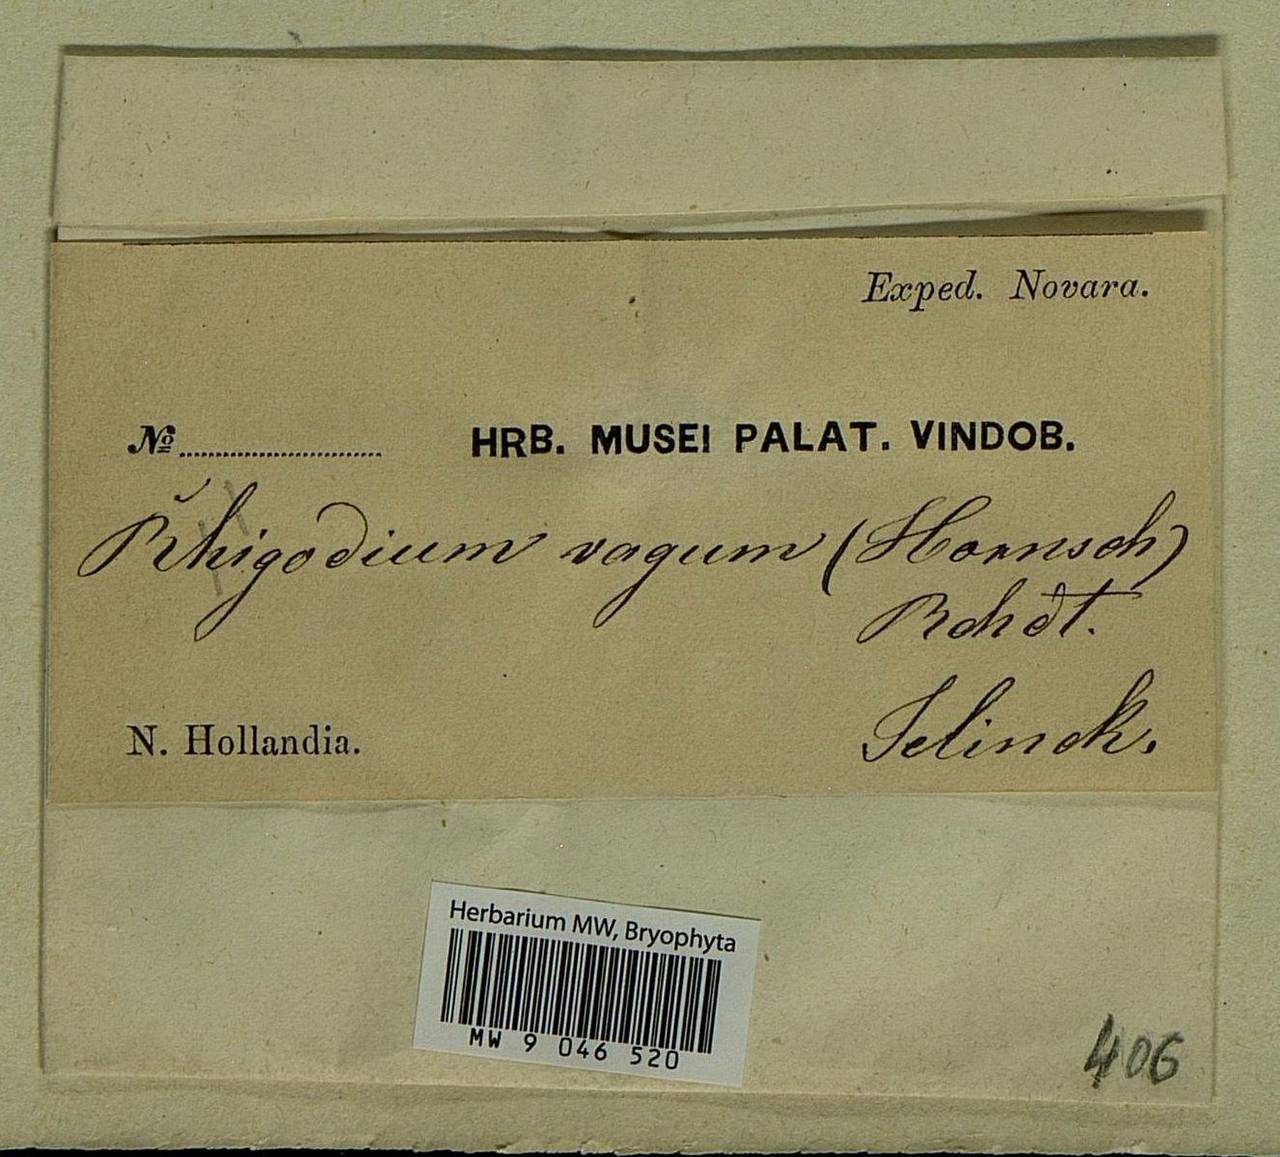 Exped. Novara.
№ .......................... HRB. MUSEI PALAT. VINDOB.
Rhigodium vagum (Hornsch)
Rchdt.
N. Hollandia.
Jelinek.
Herbarium MW, Bryophyta
MW 9 046 520
406